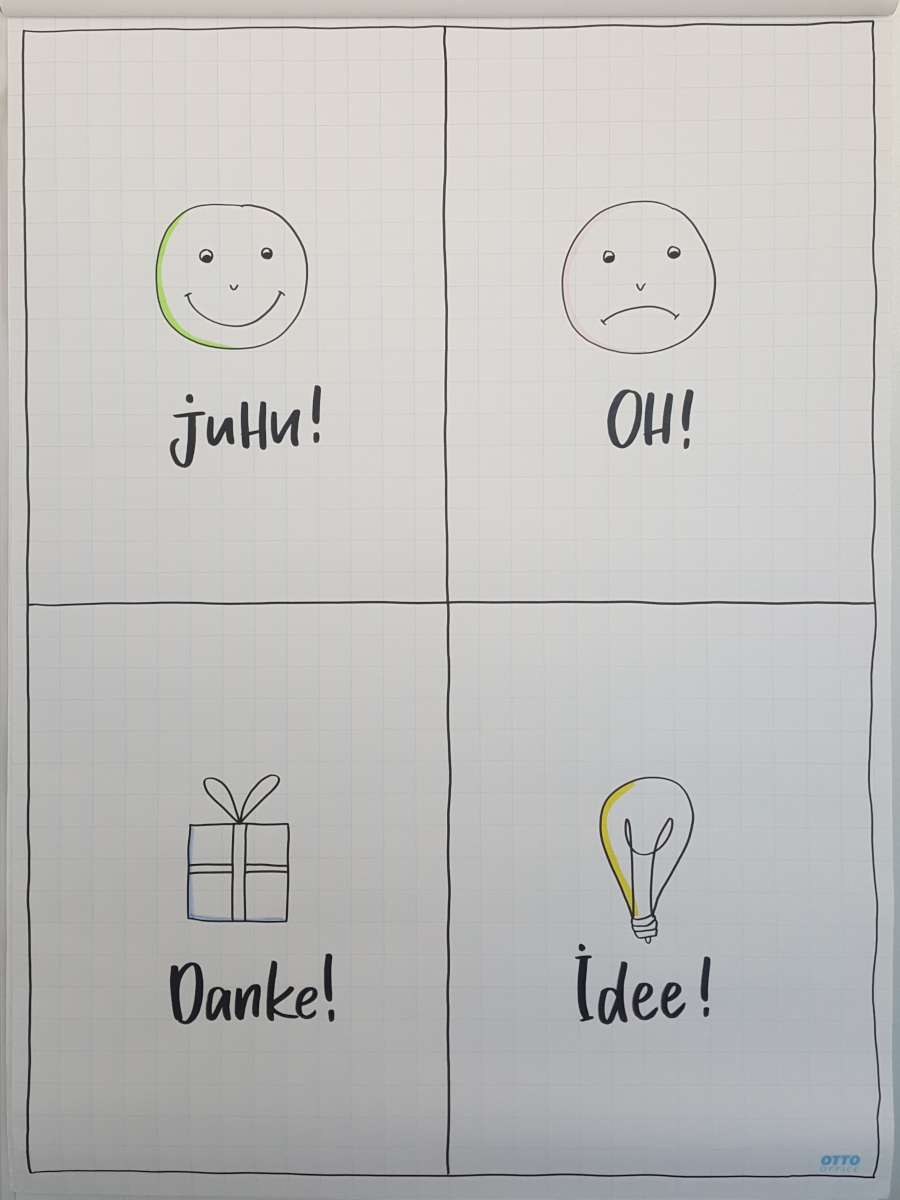 juHu!
OH!
Danke!
Idee!
OTTO
OFFICE